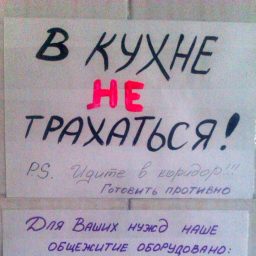 В КУХНЕ
НЕ
ТРАХАТЬСЯ!
PS. Идите в коридор!!!
Готовить противно
Для Ваших нужд наше
общежитие оборудовано: